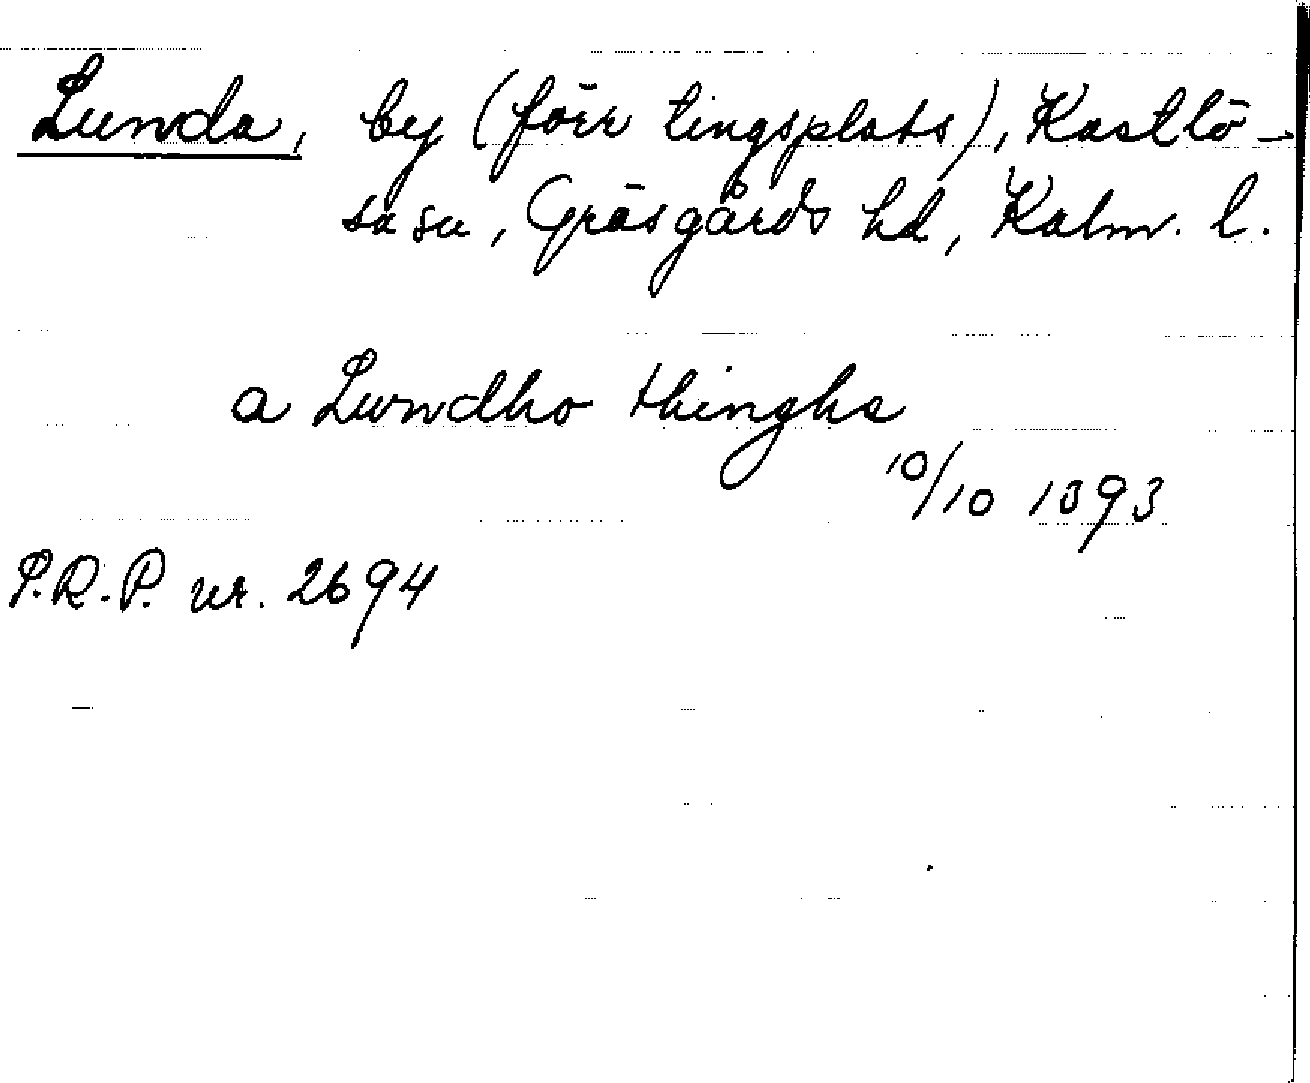 Lunda, by (förr tingsplats), Kastlö-
sa sn, Gräsgårds hd, Kalm. l.
a Lundho thinghe
10/10 1393
P.R.P. nr. 2694